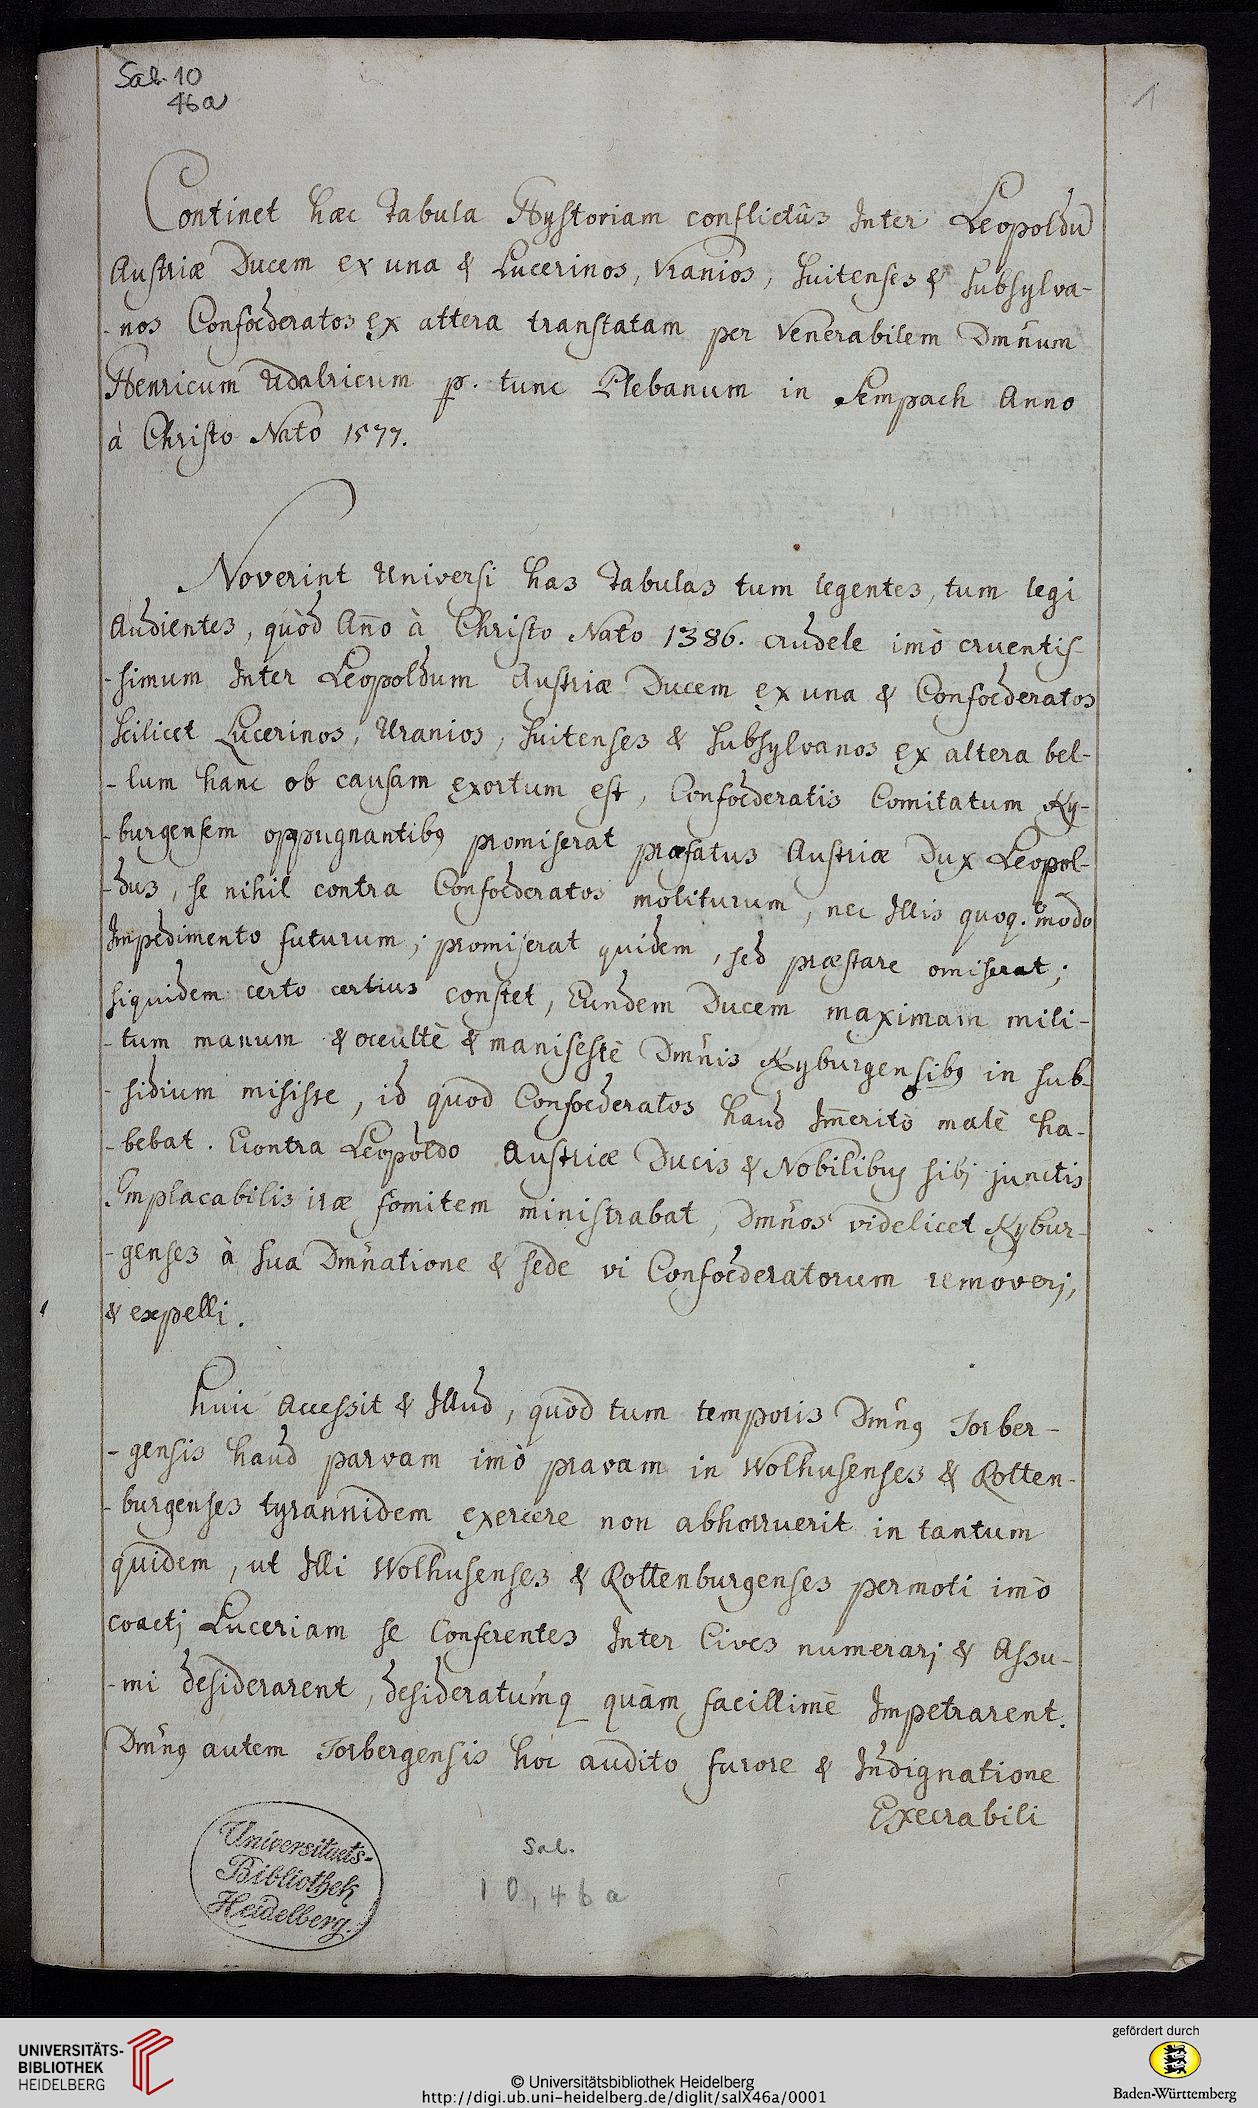 Sal. 10
46a
1
Continet hæc Tabula Hystoriam conflictûs Inter Leopoldū
Austriæ Ducem ex una & Lucerinos, Vranios, Suitenses & Subsylva-
-nos Confoederatos ex altera translatam per Venerabilem Dm̃num
Henricum Udalricum p. tunc Plebanum in Sempach Anno
à Christo Nato 1577.
Noverint Universi has Tabulas tum legentes, tum legi
Audientes, quòd Ano̅ à Christo Nato 1386. crudele imò cruentis
-simum Inter Leopoldum Austriæ Ducem ex una & Confoederatos
scilicet Lucerinos, Uranios, Suitenses & Subsylvanos ex altera bel-
-lum hanc ob causam exortum est, Confoederatis Comitatum Ky-
-burgensem oppugnantibꝰ promiserat præfatus Austriæ Dux Leopol-
-dus, se nihil contra Confoederatos moliturum, nec Illis quoq. modo
Impedimento futurum; promiserat quidem, sed præstare omiserat;
siquidem certo certius constet, Eundem Ducem maximam mili-
-tum manum & occultè & manifestè Dm̃nis Kyburgensibꝰ in sub-
-sidium misisse, id quod Confoederatos haud Im̅eritò malè ha-
-bebat. Econtra Leopoldo Austriæ Ducis & Nobilibus sibj junctis
Implacabilis iræ fomitem ministrabat, Dm̃nos videlicet Kybur-
-genses à sua Dm̃natione & sede vi Confoederatorum removerj,
& expelli.
Huic Accessit & Illud, quòd tum temporis Dm̃nꝰ Torber-
-gensis haud parvam imò pravam in Wolhusenses & Rotten-
-burgenses tyrannidem exercere non abhorruerit in tantum
quidem, ut Illi Wolhusenses & Rottenburgenses permoti imò
coactj Luceriam se Conferentes Inter Cives numerarj & Assu-
-mi desiderarent, desideratúmq quàm facillimè Impetrarent.
Dm̃nꝰ autem Torbergensis hoc audito furore & Indignatione
Execrabili
Universitaets-
Bibliothek
Heidelberg.
Sal.
10,46a
UNIVERSITÄTS-
BIBLIOTHEK
HEIDELBERG
© Universitätsbibliothek Heidelberg
http://digi.ub.uni-heidelberg.de/diglit/salX46a/0001
gefördert durch
Baden-Württemberg